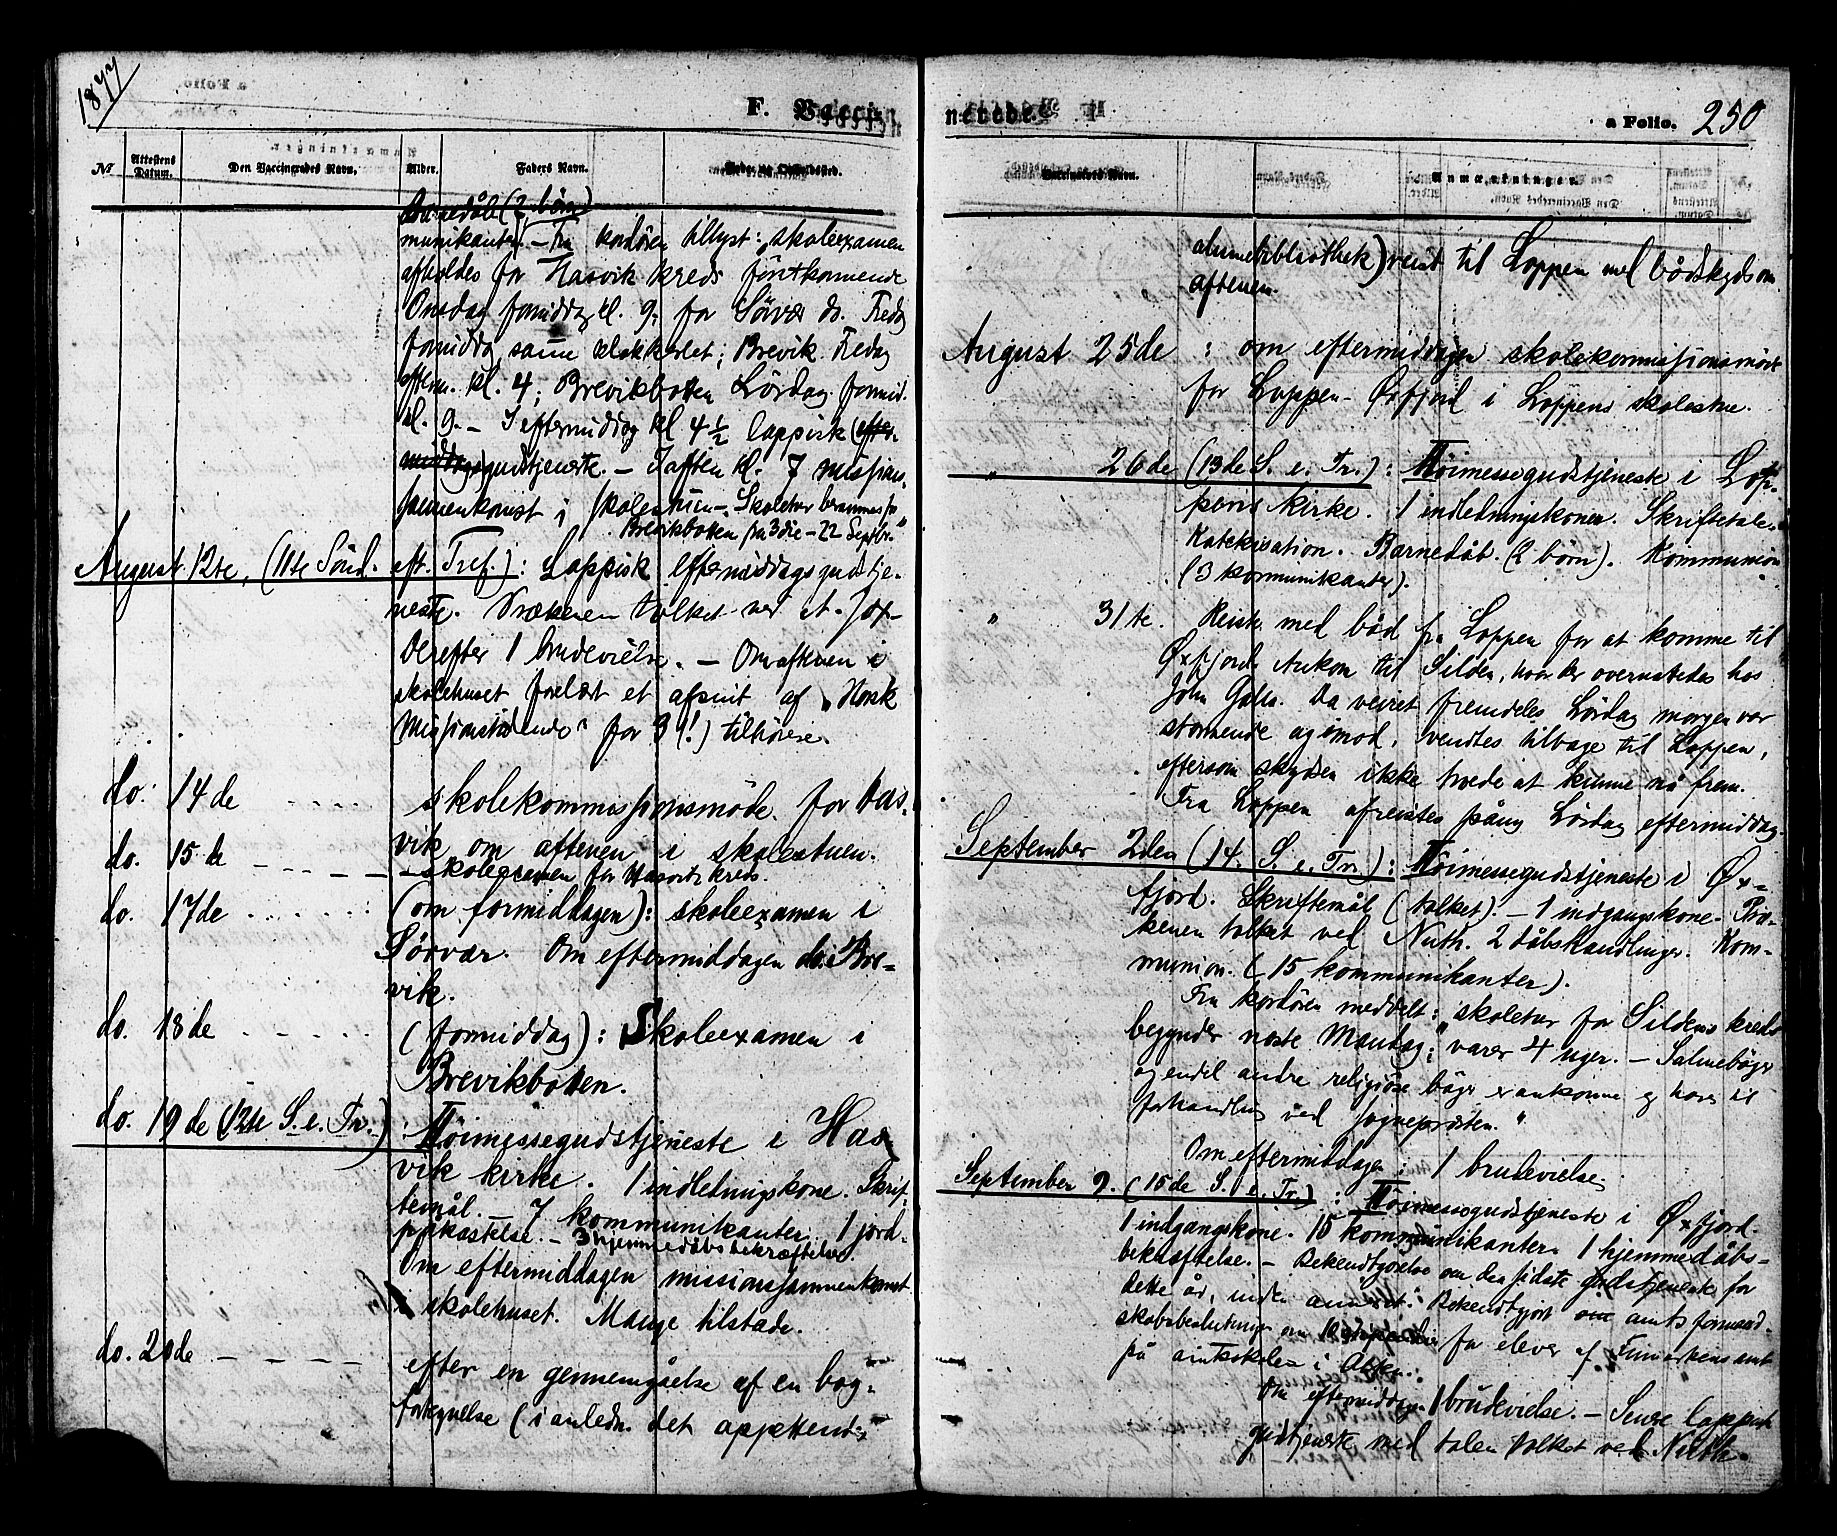 1877
F. Vaccin
№ Attestens Datum. Den Vaccineredes Navn. Alder. Faders Navn.
Barnedåb (2 börn)
munikanter). – Fra kordören tillyst: „skoleexamen
afholdes for Hasvik kreds förstkommende
Onsdag formiddag kl. 9; for Sörvær do. Fredag
formiddag samme klokkeslet; Brevik Fredag
efterm. kl. 4; Brevikbotten Lördag formid.
kl. 9. – I eftermiddag kl 4½ lappisk (efter-
middags)gudstjeneste. – I aften kl. 7 missions-
sammenkomst i skolestuen –. Skoletur
Brevikbotten fra 3die – 22 Septbr."
August 12te, (11te Sönd. eft. Tref.): Lappisk eftermiddagsgudstje-
neste. tolket ved
Derefter 1 brudevielse. – Om aftenen i
skolehuset forelæst et afsnit af „Norsk
Missionstidende" for 3 (!) tilhörere.
do. 14de - - - - skolekommissionsmöde for Has-
vik om aftenen i skolestuen.
do. 15de - - - - - skoleexamen for Hasviks kreds.
do. 17de - - - - - (om formiddagen): skoleexamen i
Sörvær. Om eftermiddagen do. i Bre-
vik.
do. 18de - - - - - (formiddag): Skoleexamen i
Brevikbotten.
do. 19de (12te S. e. Tr.): Höimessegudstjeneste i Has-
vik kirke. 1 indledningskone. Skrif-
temål. – 7 kommunikanter. 1 jord-
påkastelse. – 3 hjemmedåbsbekræftelser.
Om eftermiddagen missionssammenkomst
i skolehuset. Mange tilstede.
do. 20de - - - - efter en gennemgåelse af en bog-
fortegnelse (i anledn. det
nerede. a Folio. 250
Anmærkninger.
almuebibliothek) reist til Loppen med bådskyds om
aftenen.
August 25de : om eftermiddagen skolekommissionsmöde
for Loppen-Öxfjord i Loppens skolestue.
„ 26de (13de S. e. Tr.): Höimessegudstjeneste i Lop-
pens kirke. 1 indledningskone. Skriftetale.
Katekisation. Barnedåb. (2 börn). Kommunion
(3 kommunikanter).
„ 31te. Reiste med båd fra Loppen for at komme til
Øxfjord. Ankom til Silden, hvor der overnattedes hos
John Da veiret fremdeles Lördag morgen var
stormende og imod, vendtes tilbage til Loppen,
eftersom skydsen ikke troede at kunne nå frem.
Fra Loppen afreistes påny Lördag eftermiddag.
September 2den (14. S. e. Tr.): Höimessegudstjeneste i Øx-
fjord. Skriftemål (tolket). – 1 indgangskone. Præ-
kenen tolket ved Nuth. 2 dåbshandlinger. Kom-
munion. (15 kommunikanter).
Fra kordören meddelt: „skoletur for Sildens kreds
begynder næste Mandag; varer 4 uger. – Salmebøger
og endel andre religiöse böger er ankomne og haves til
forhandling ved sognepræsten."
Om eftermiddagen: 1 brudevielse.
September 9. (15de S. e. Tr.): Höimessegudstjeneste i Øxfjord.
1 indgangskone. 15 kommunikanter. 1 hjemmedåbs-
bekræftelse. – Bekendtgørelse om den sidste gudstjeneste for
dette år, inden Bekendtgjort om amtsformand-
skabsbeslutning om for elever af Finmarkens amt
på amtskolen i
Om eftermiddagen 1 brudevielse. – Senere lappisk
gudstjeneste med talen tolket ved Nuth.